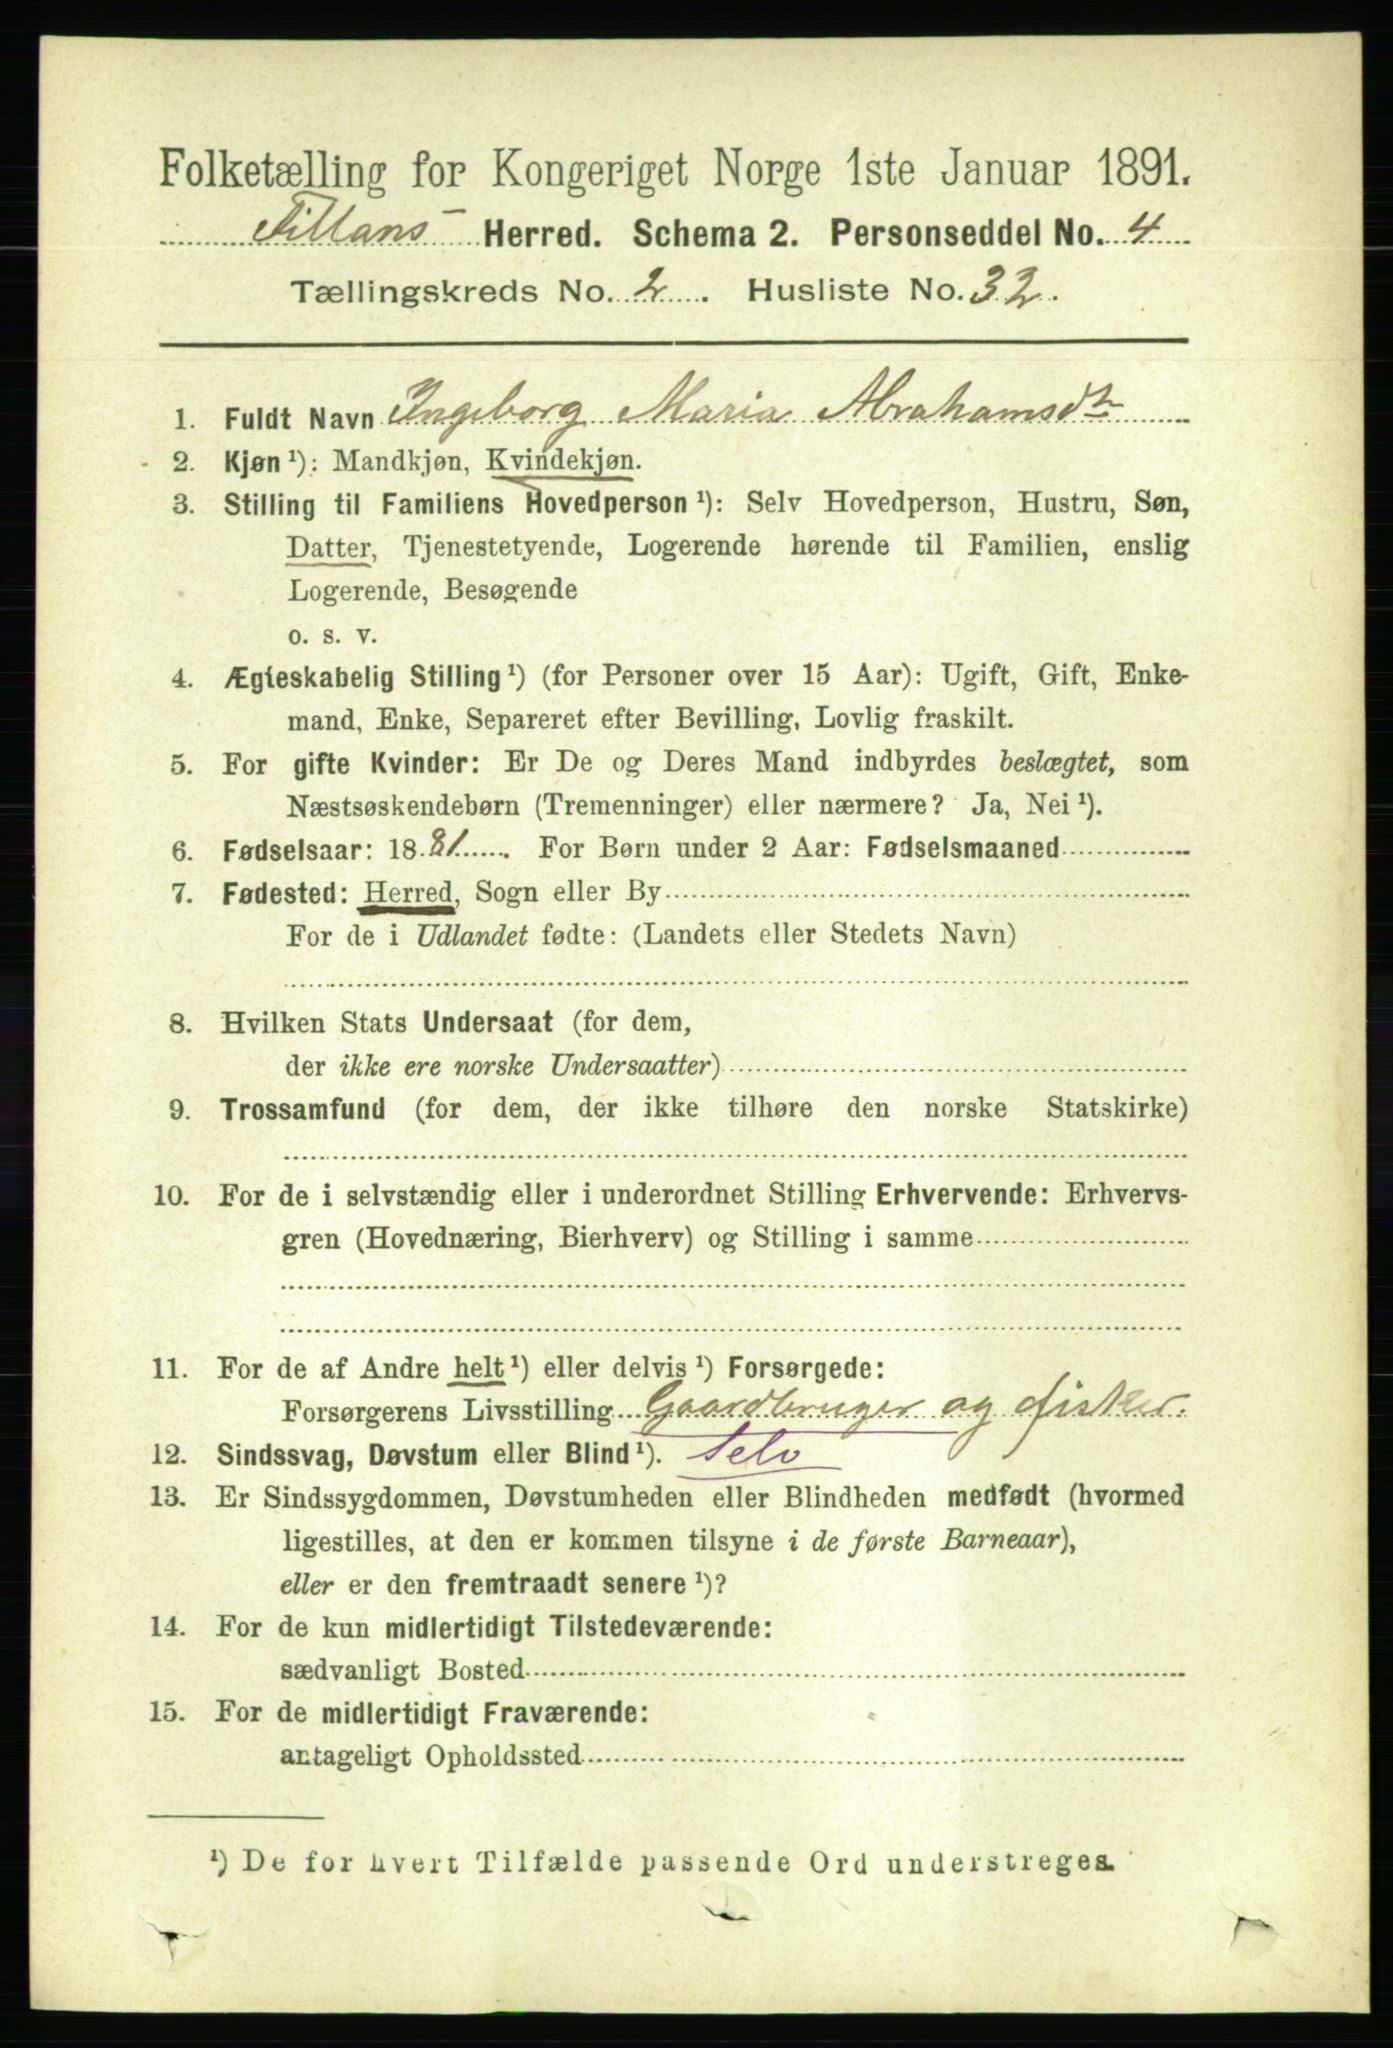 Folketælling for Kongeriget Norge 1ste Januar 1891.
Fillans Herred. Schema 2. Personseddel No. 4
Tællingskreds No. 2. Husliste No. 32.
1. Fuldt Navn Ingeborg Maria Abrahamsdtr
2. Kjøn ¹): Mandkjøn, Kvindekjøn.
3. Stilling til Familiens Hovedperson ¹): Selv Hovedperson, Hustru, Søn,
Datter, Tjenestetyende, Logerende hørende til Familien, enslig
Logerende, Besøgende
o. s. v.
4. Ægteskabelig Stilling ¹) (for Personer over 15 Aar): Ugift, Gift, Enke-
mand, Enke, Separeret efter Bevilling, Lovlig fraskilt.
5. For gifte Kvinder: Er De og Deres Mand indbyrdes beslægtet, som
Næstsøskendebørn (Tremenninger) eller nærmere? Ja, Nei ¹).
6. Fødselsaar: 1881. For Børn under 2 Aar: Fødselsmaaned
7. Fødested: Herred, Sogn eller By
For de i Udlandet fødte: (Landets eller Stedets Navn)
8. Hvilken Stats Undersaat (for dem,
der ikke ere norske Undersaatter)
9. Trossamfund (for dem, der ikke tilhøre den norske Statskirke)
10. For de i selvstændig eller i underordnet Stilling Erhvervende: Erhvervs-
gren (Hovednæring, Bierhverv) og Stilling i samme
11. For de af Andre helt ¹) eller delvis ¹) Forsørgede:
Forsørgerens Livsstilling Gaardbruger og fisker.
12. Sindssvag, Døvstum eller Blind ¹). Selv
13. Er Sindssygdommen, Døvstumheden eller Blindheden medfødt (hvormed
ligestilles, at den er kommen tilsyne i de første Barneaar),
eller er den fremtraadt senere ¹)?
14. For de kun midlertidigt Tilstedeværende:
sædvanligt Bosted
15. For de midlertidigt Fraværende:
antageligt Opholdssted
¹) De for hvert Tilfælde passende Ord understreges.